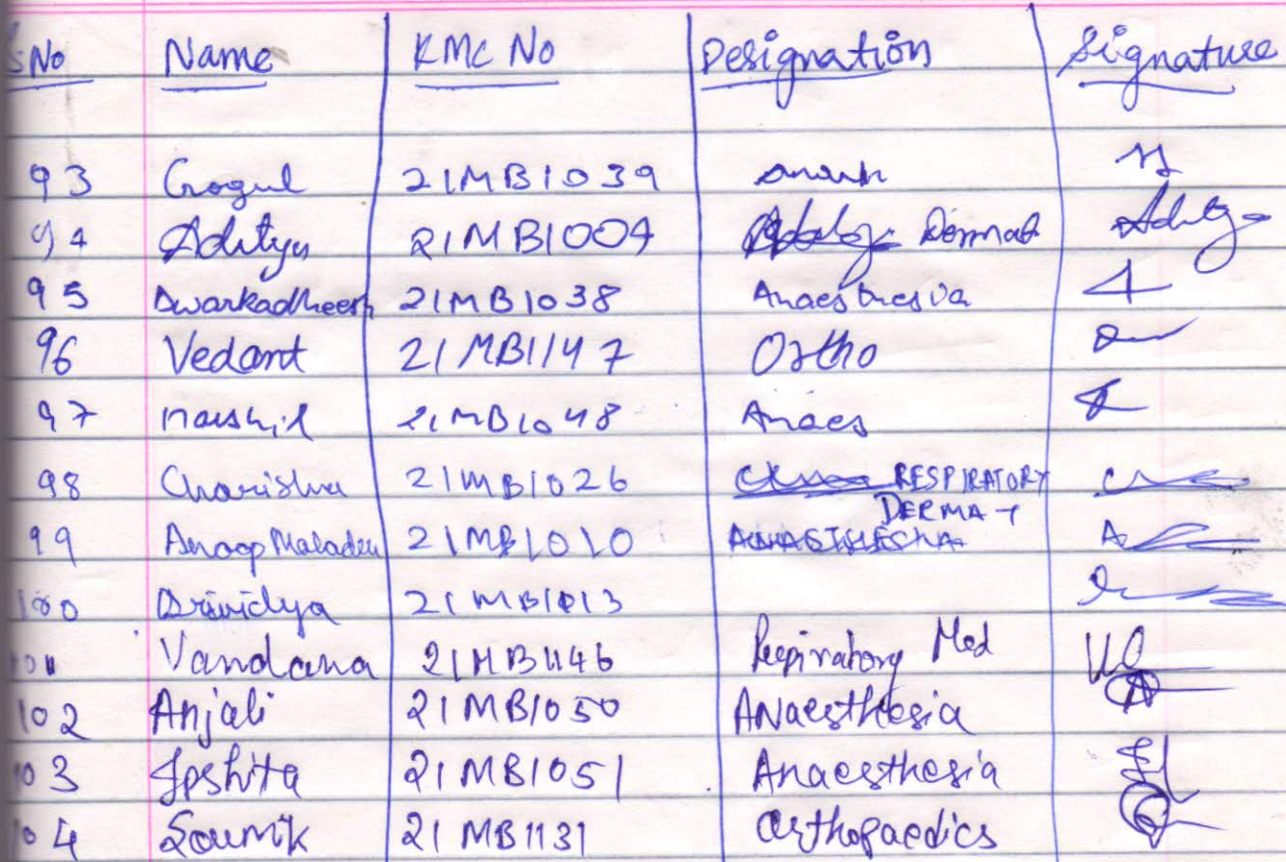 S.No Name KMC No Designation Signature
93 Gogul 21MB1039
94 Aditya 21MB1004 Dermat Aditya
95 Dwarkadheesh 21MB1038 Anaesthesia
96 Vedant 21MB1147 Ortho
97 Harshil 21MB1048 Anaes
98 Charishva 21MB1026 RESPIRATORY
DERMAT
99 Anoop 21MB1010
100 Srividya 21MB1013
101 Vandana 21MB1146 Respiratory Med
102 Anjali 21MB1050 ANaesthesia
103 Ipshita 21MB1051 Anaesthesia
104 Soumik 21MB1131 Orthopaedics